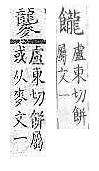 盧東切餅
屬文一
盧東切餅屬
或从麥文一